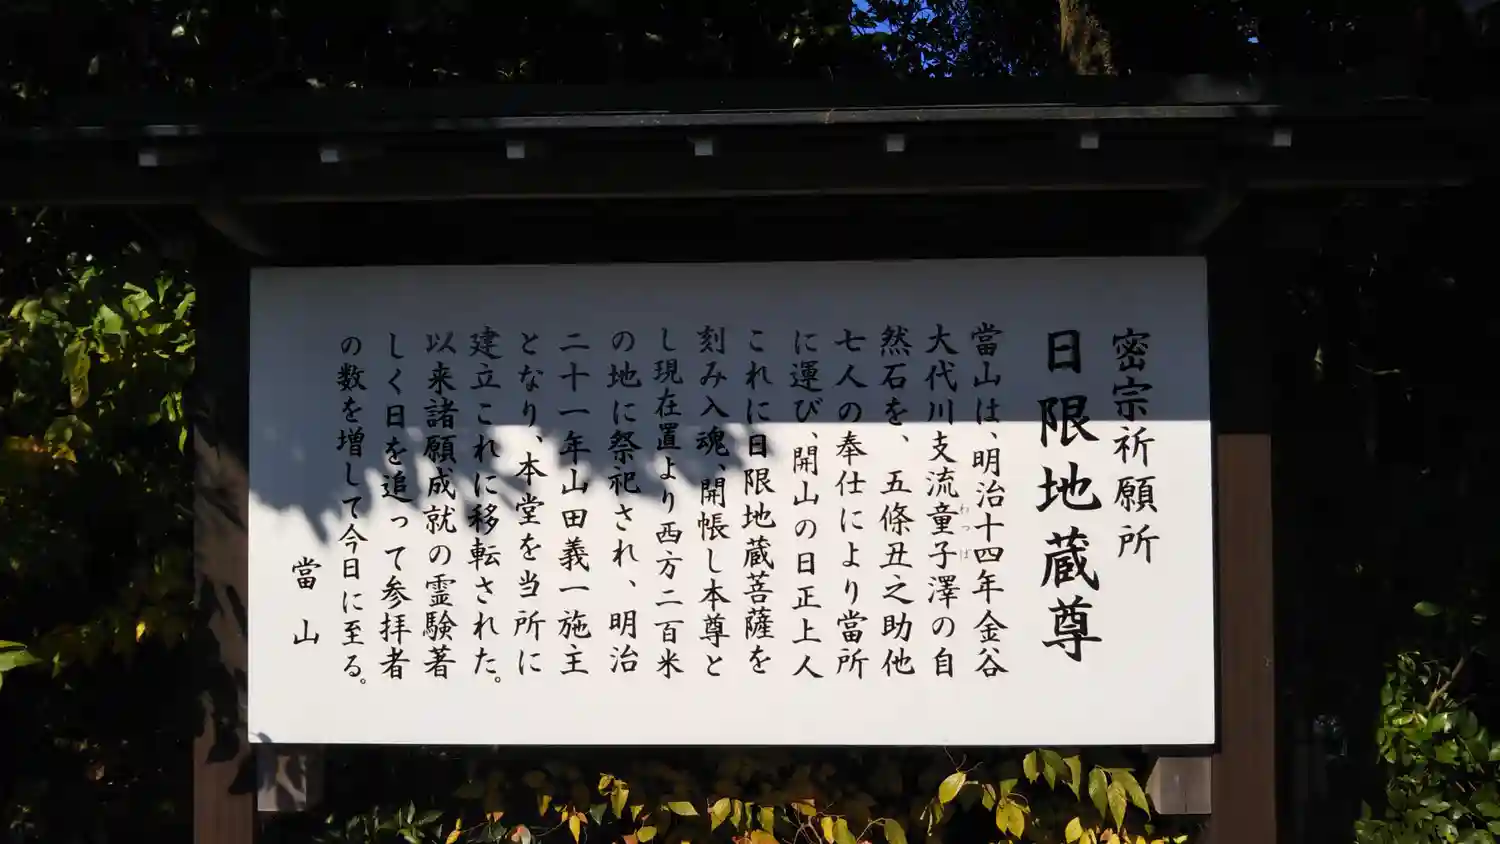 密宗祈願所
日限地蔵尊
當山は、明治十四年金谷
大代川支流童子澤の自
わっぱ
然石を、五條丑之助他
七人の奉仕により當所
に運び、開山の日正上人
これに日限地蔵菩薩を
刻み入魂、開帳し本尊と
し現在置より西方二百米
の地に祭祀され、明治
二十一年山田義一施主
となり、本堂を当所に
建立これに移転された。
以来諸願成就の霊験著
しく日を追って参拝者
の数を増して今日に至る。
當山